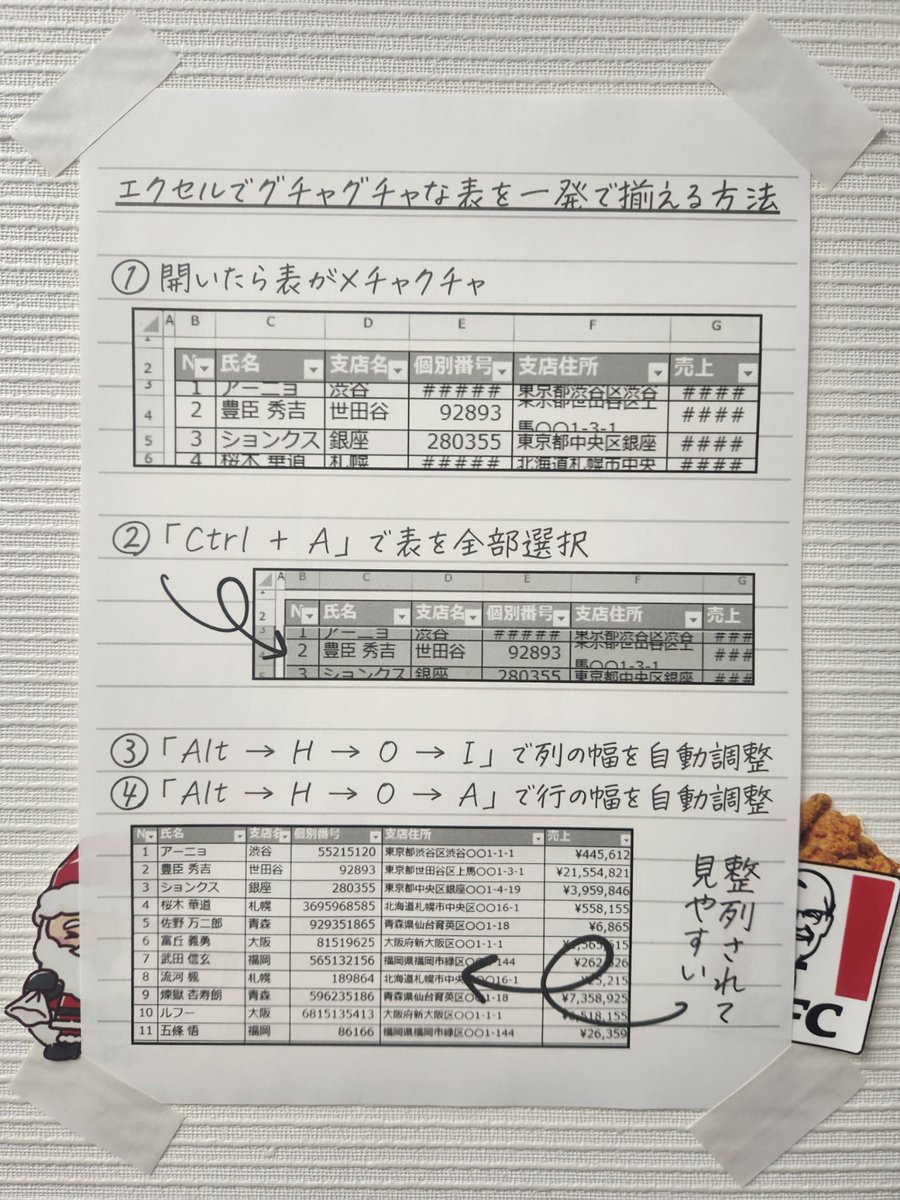 エクセルでグチャグチャな表を一発で揃える方法
① 開いたら表がメチャクチャ
A B C D E F G
1
2 N 氏名 支店名 個別番号 支店住所 売上
3 1 アーニョ 渋谷 ##### 東京都渋谷区渋谷 ####
4 2 豊臣 秀吉 世田谷 92893 東京都世田谷区上 ####
馬〇〇1-3-1
5 3 ションクス 銀座 280355 東京都中央区銀座 ####
6 4 桜木 華道 札幌 ##### 北海道札幌市中央 ####
② 「Ctrl + A」で表を全部選択
A B C D E F G
1
2 N 氏名 支店名 個別番号 支店住所 売上
3 1 アーニョ 渋谷 ##### 東京都渋谷区渋谷 ###
4 2 豊臣 秀吉 世田谷 92893 東京都世田谷区上 ###
馬〇〇1-3-1
5 3 ションクス 銀座 280355 東京都中央区銀座 ###
③ 「Alt → H → O → I」で列の幅を自動調整
④ 「Alt → H → O → A」で行の幅を自動調整
N 氏名 支店名 個別番号 支店住所 売上
1 アーニョ 渋谷 55215120 東京都渋谷区渋谷〇〇1-1-1 ¥445,612
2 豊臣 秀吉 世田谷 92893 東京都世田谷区上馬〇〇1-3-1 ¥21,554,821
3 ションクス 銀座 280355 東京都中央区銀座〇〇1-4-19 ¥3,959,846
4 桜木 華道 札幌 3695968585 北海道札幌市中央区〇〇16-1 ¥558,155
5 佐野 万二郎 青森 929351865 青森県仙台育英区〇〇1-18 ¥6,865
6 富丘 義勇 大阪 81519625 大阪府新大阪区〇〇1-1-1
7 武田 信玄 福岡 565132156 福岡県福岡市緑区〇〇1-144
8 流河 楓 札幌 189864 北海道札幌市中央 16-1
9 煉獄 杏寿朗 青森 596235186 青森県仙台育英区〇〇1-18 ¥7,358,925
10 ルフー 大阪 6815135413 大阪府新大阪区〇〇1-1-1 ,518,155
11 五條 悟 福岡 86166 福岡県福岡市緑区〇〇1-144 ¥26,359
整列されて
見やすい
FC